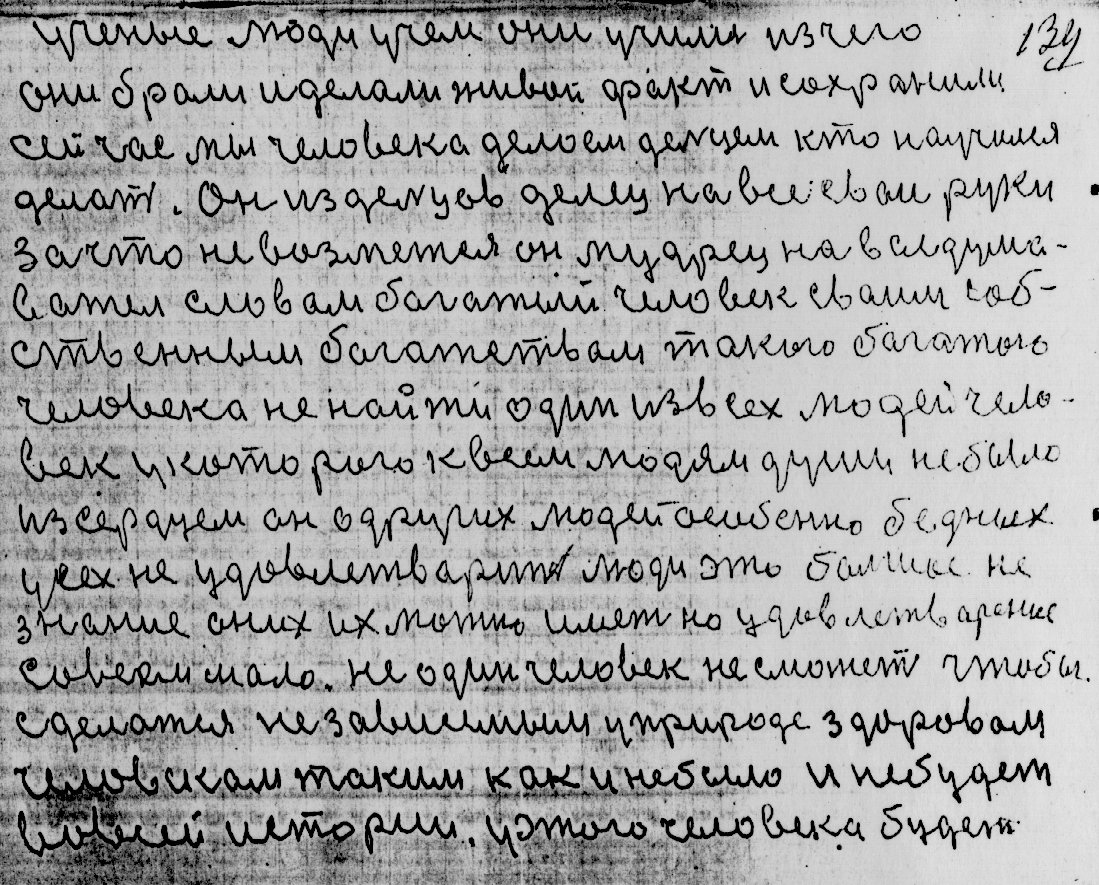 139
ученые люди учем они учили изчего
они брали иделали живой факт исохранили
сей час мы человека делоем делцем кто научился
делат. Он изделцов делец навсе сваи руки
зачто невозметея он мудрец на вседума-
вател словам багатый человек сваим соб-
ственным багатетвам такого багатого
человека не найти один извсех людей чело-
век укоторого квсем людям души небыло
изсердцем он одругих людей особенно бедных
усех не удовлетварит люди это балшое не
знание оних их можно имет но удовлетварение
совсем мало. не один человек несможет чтобы.
сделатея независимым уприроде здоровам
человекам таким как инебыло и небудет
вовсей истории, уэтого человека будет